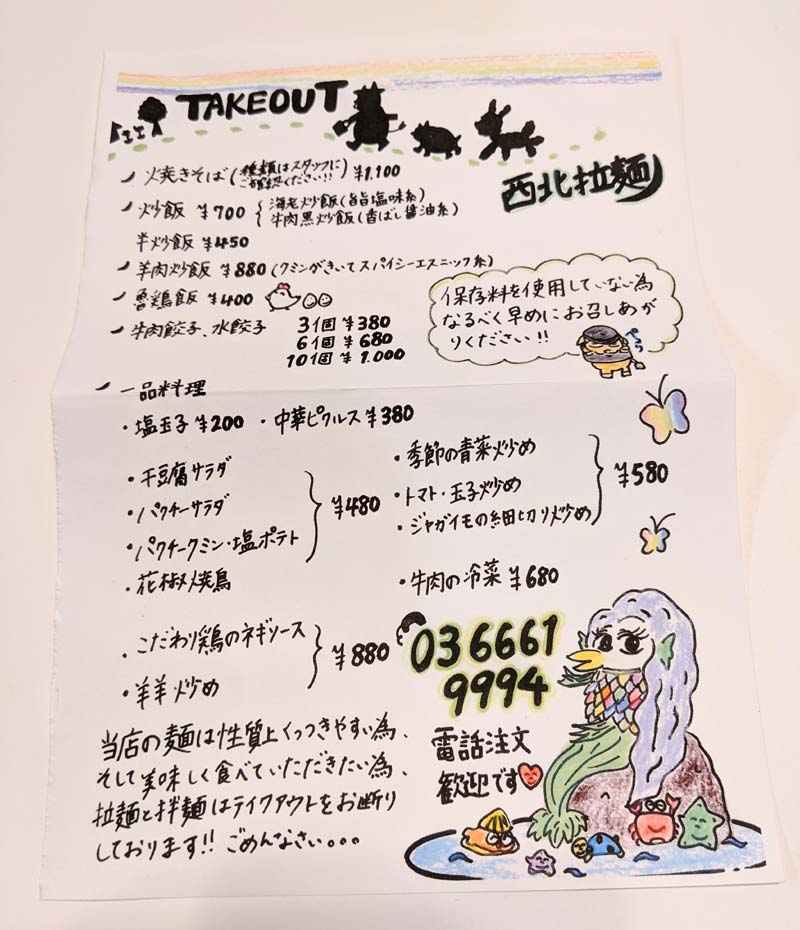 TAKEOUT
西北拉麺
焼きそば(種類はスタッフに
ご確認ください!!) ¥1,100
炒飯 ¥700 海老炒飯(旨旨塩味系)
牛肉黒炒飯(香ばし醤油系)
半炒飯 ¥450
羊肉炒飯 ¥880(クミンがきいてスパイシーエスニック系)
魯鶏飯 ¥400
牛肉餃子、水餃子 3個 ¥380
6個 ¥680
10個 ¥1,000
保存料を使用していない為
なるべく早めにお召しあが
りください!!
ペコリ
一品料理
・塩玉子 ¥200 ・中華ピクルス ¥380
・干豆腐サラダ
・パクチーサラダ
・パクチークミン・塩ポテト
・花椒焼鳥
¥480
・季節の青菜炒め
・トマト・玉子炒め
・ジャガイモの細切り炒め
¥580
・牛肉の冷菜 ¥680
・こだわり鶏のネギソース
・羊羊炒め
¥880
036661
9994
電話注文
歓迎です
当店の麺は性質上くっつきやすい為、
そして美味しく食べていただきたい為、
拉麺と拌麺はテイクアウトをお断り
しております!! ごめんなさい。。。